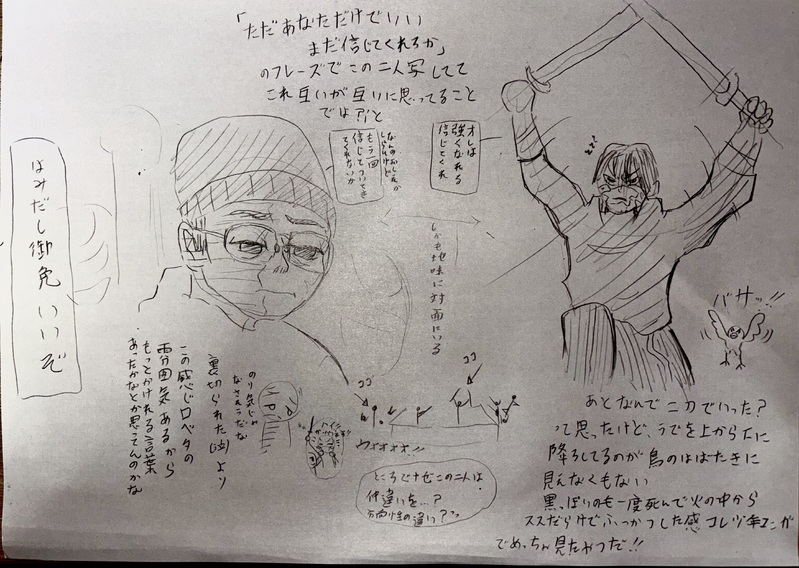 「ただあなただけでいい
まだ信じてくれるか」
のフレーズでこの二人写してて
これ互いが互いに思ってること
では?!と
オレは
強くなれる
信じてくれ
もう一回
信じてついてき
てくれないか
しかも地味に対面にいる
はみだし御免 いいぞ
バサッ!!
この感じロベタの
雰囲気あるから
もっとかけれる言葉
あったかなとか思ってんのかな
裏切られた(泣)より
のり気じゃ
なさそうだな
ココ
ココ
ウォォォォ!!
ところでなぜこの二人は
仲違いを…?
方向性の違い?
あとなんで二刀でいった?
って思ったけど、うでを上から下に
降ろしてるのが鳥のはばたきに
見えなくもない
黒っぽいのも一度死んで火の中から
ススだらけでふっかつした感
でめっちゃ見たやつだ!!